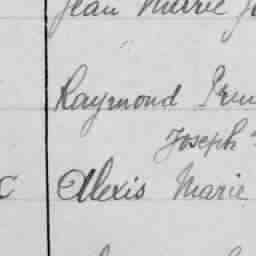 Jean Marie
Raymond
Joseph
Alexis Marie